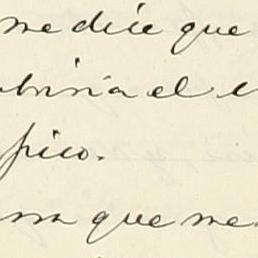 me dice que
abriria el e
pico.
na que me